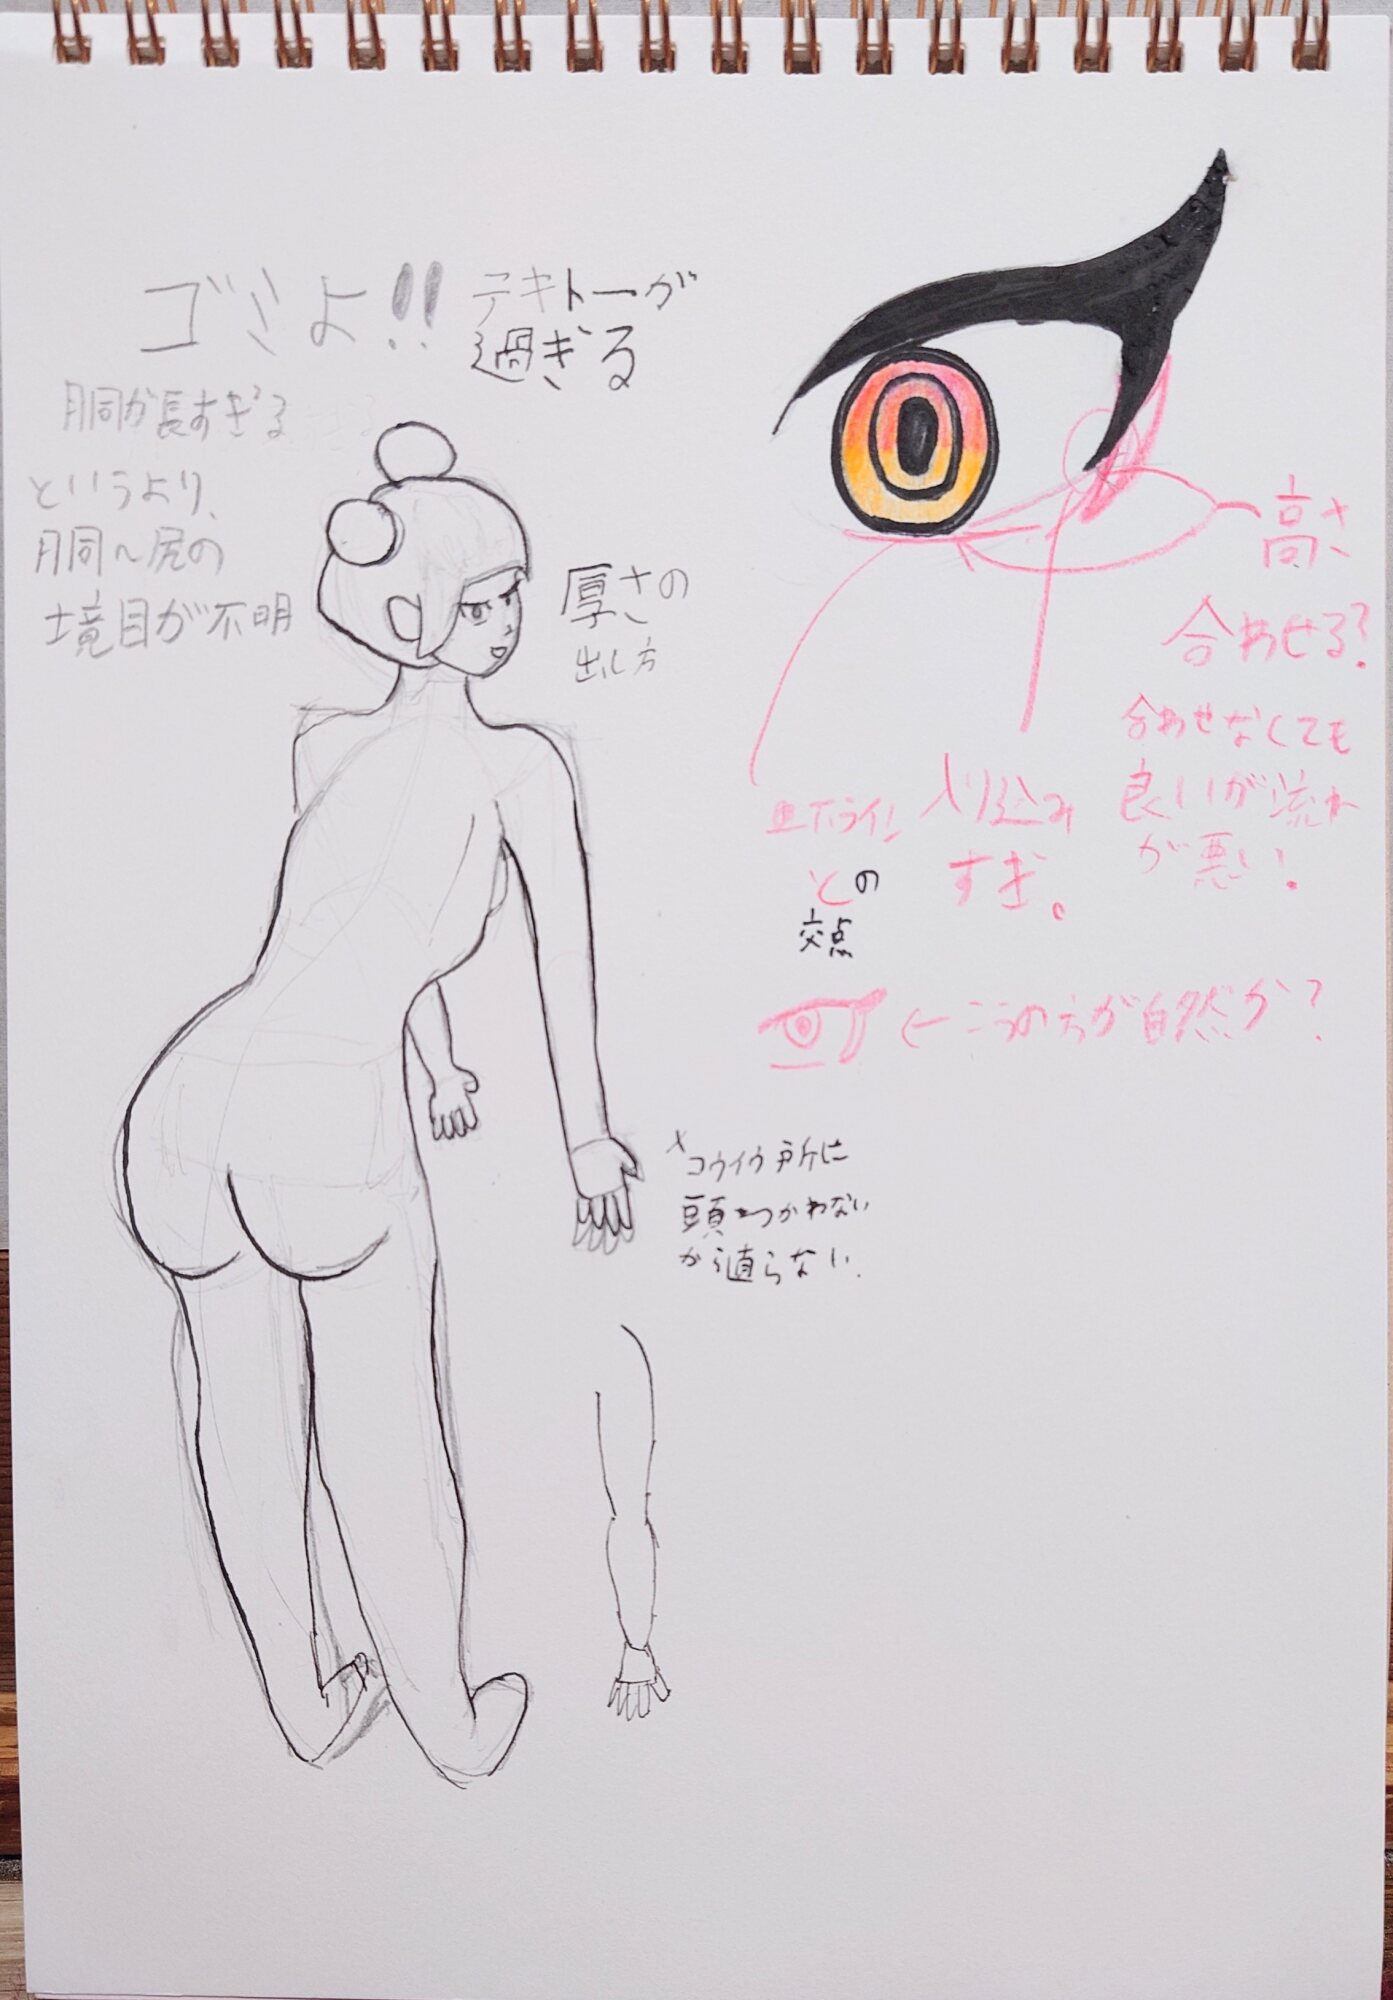 ゴミよ!!
テキトーが
過ぎる
胴が長すぎる
というより、
胴〜尻の
境目が不明
厚さの
出し方
高さ
合わせる?
合わせなくても
良いが流れ
が悪い.
入り込み
すぎ。
下ライン
との
交点
←こうの方が自然か?
コウイウ所に
頭をつかわない
から直らない.